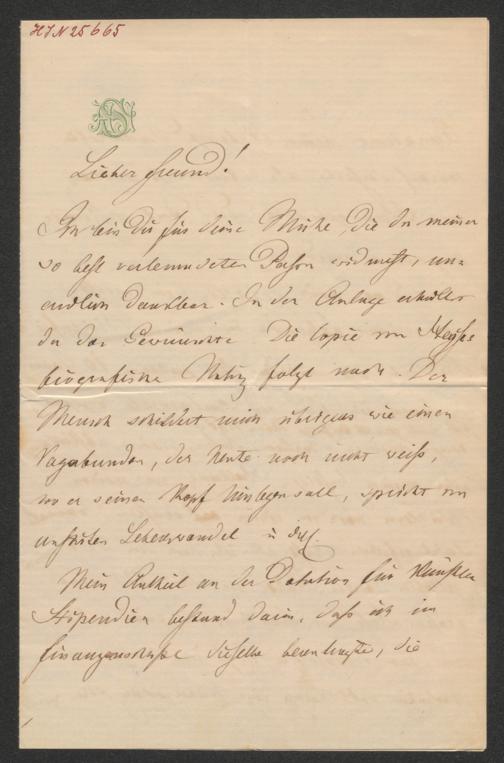 HIN 25665
Lieber Freund!
Ich bin Dir für Deine Mühe, die du meiner
so oft verleumdeten Person widmest, un-
endlich dankbar. In der Anlage erhältst
du das Gewünschte. Die Copie von Heyses
biografischer Notiz folgt nach. Der
Mensch schildert mich übrigens wie einen
Vagabunden, der heute noch nicht weiß,
wo er seinen Kopf hinlegen soll, spricht von
unstäten Lebenswandel u dgl.
Mein Antheil an der Dotation für Künstler
Stipendien bestand darin, daß ich im
Finanzausschuße dieselbe beantragte, die